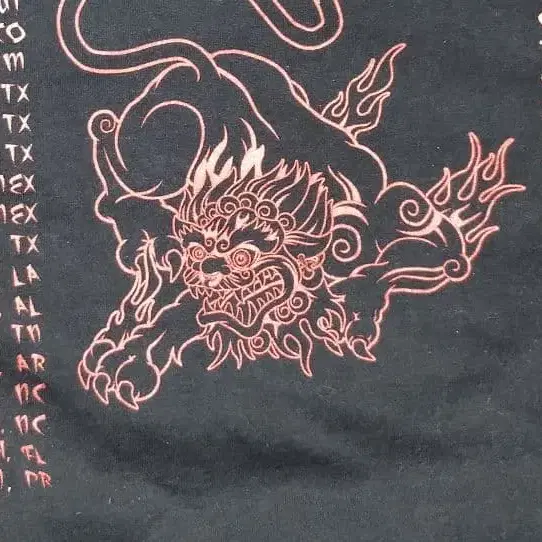 TX
TX
TX
MEX
MEX
TX
LA
AL
TN
AR
NC
NC
FL
PR